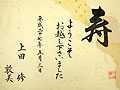 寿
ようこそ
お越し下さいました
平成二十七年五月三日
上田 修
敦美